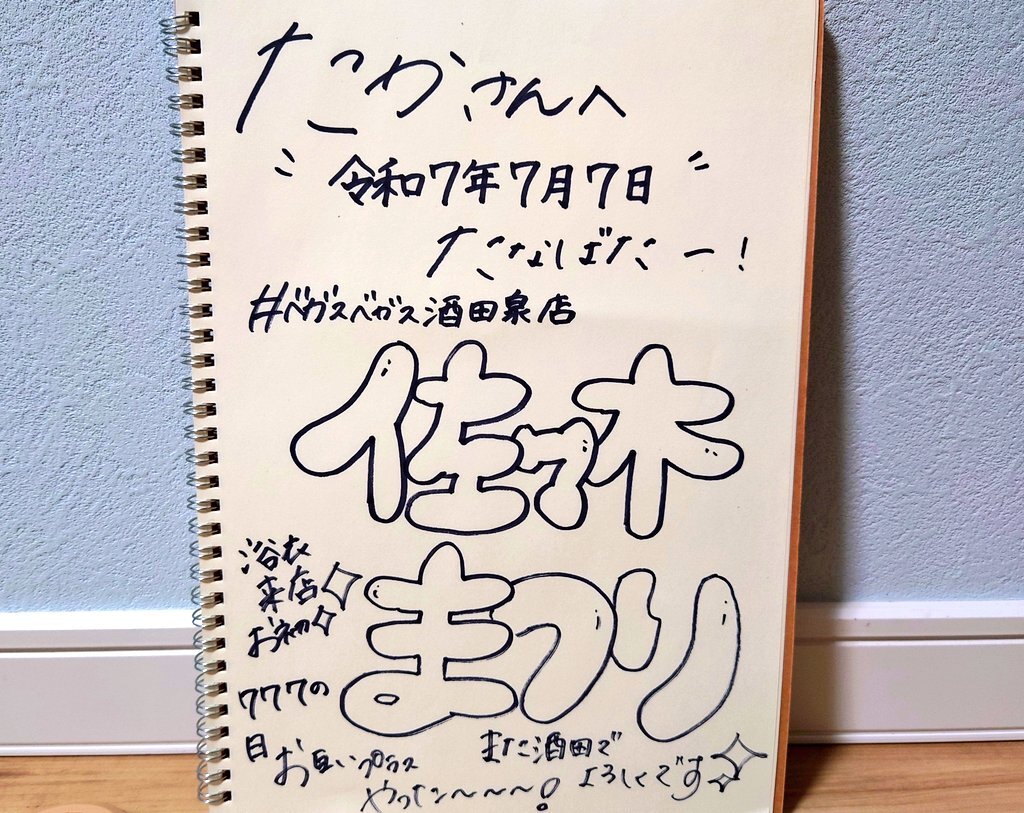 たかさんへ
令和7年7月7日
たなばたー!
#ベガスベガス酒田泉店
佐々木
まつり
浴衣
来店
お初
777の
日お互いプラス
やったー〜〜〜!
また酒田で
よろしくです